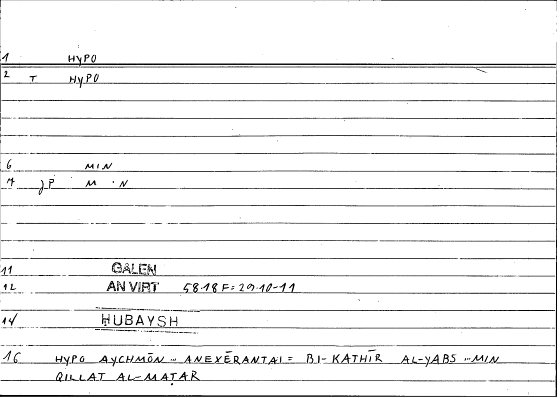 1 HYPO
2 T HYPO
6 MIN
7 JP M N
11 GALEN
12 AN VIRT 58·18 F = 29·10-11
14 HUBAYSH
16 HYPO AYCHMŌN ··· ANEXĒRANTAI = BI-KATHĪR AL-YABS ··· MIN
QILLAT AL-MAṬAR